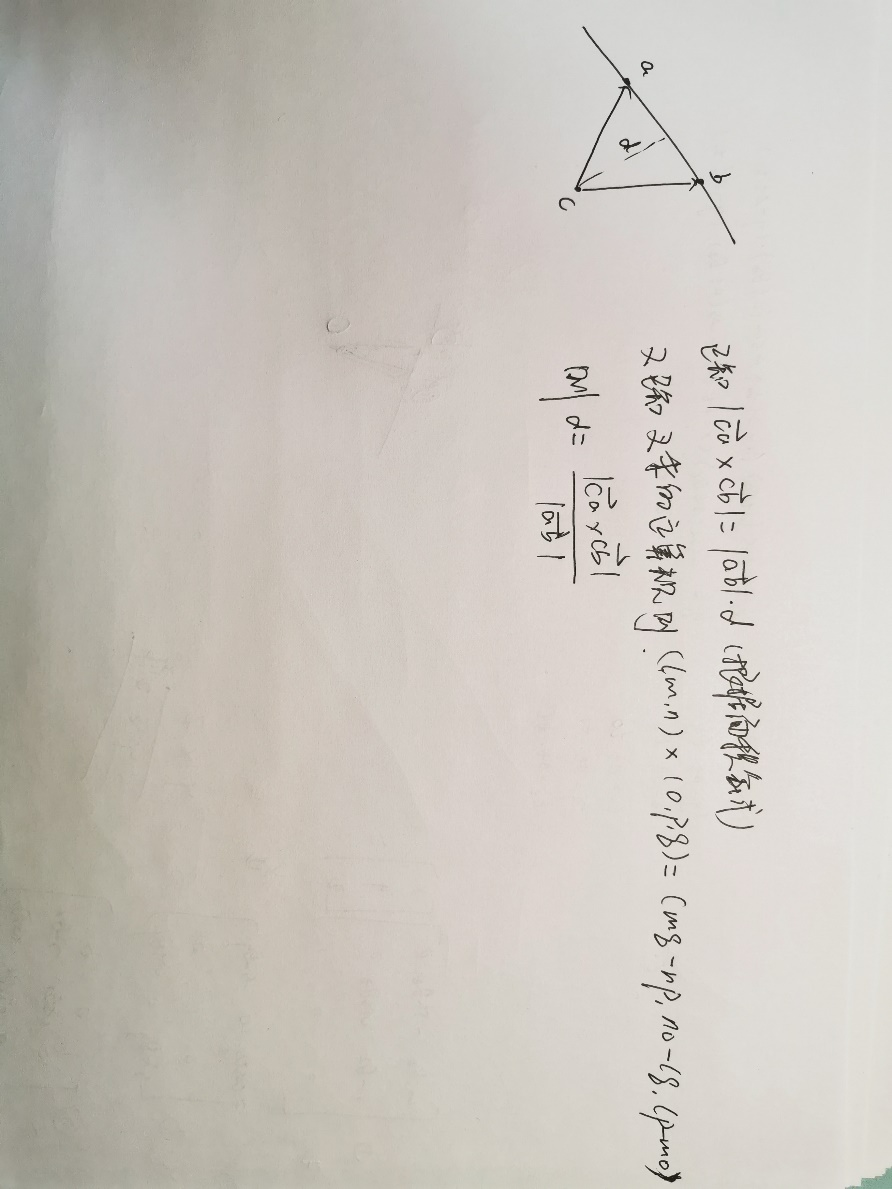 a
b
d
c
已知 |c⃗a × c⃗b| = |a⃗b|·d (根据面积公式)
又已知 叉乘的运算规则. (l,m,n) × (o,p,q) = (mq-np, no-lq, lp-mo)
则 d = |c⃗a × c⃗b| / |a⃗b|